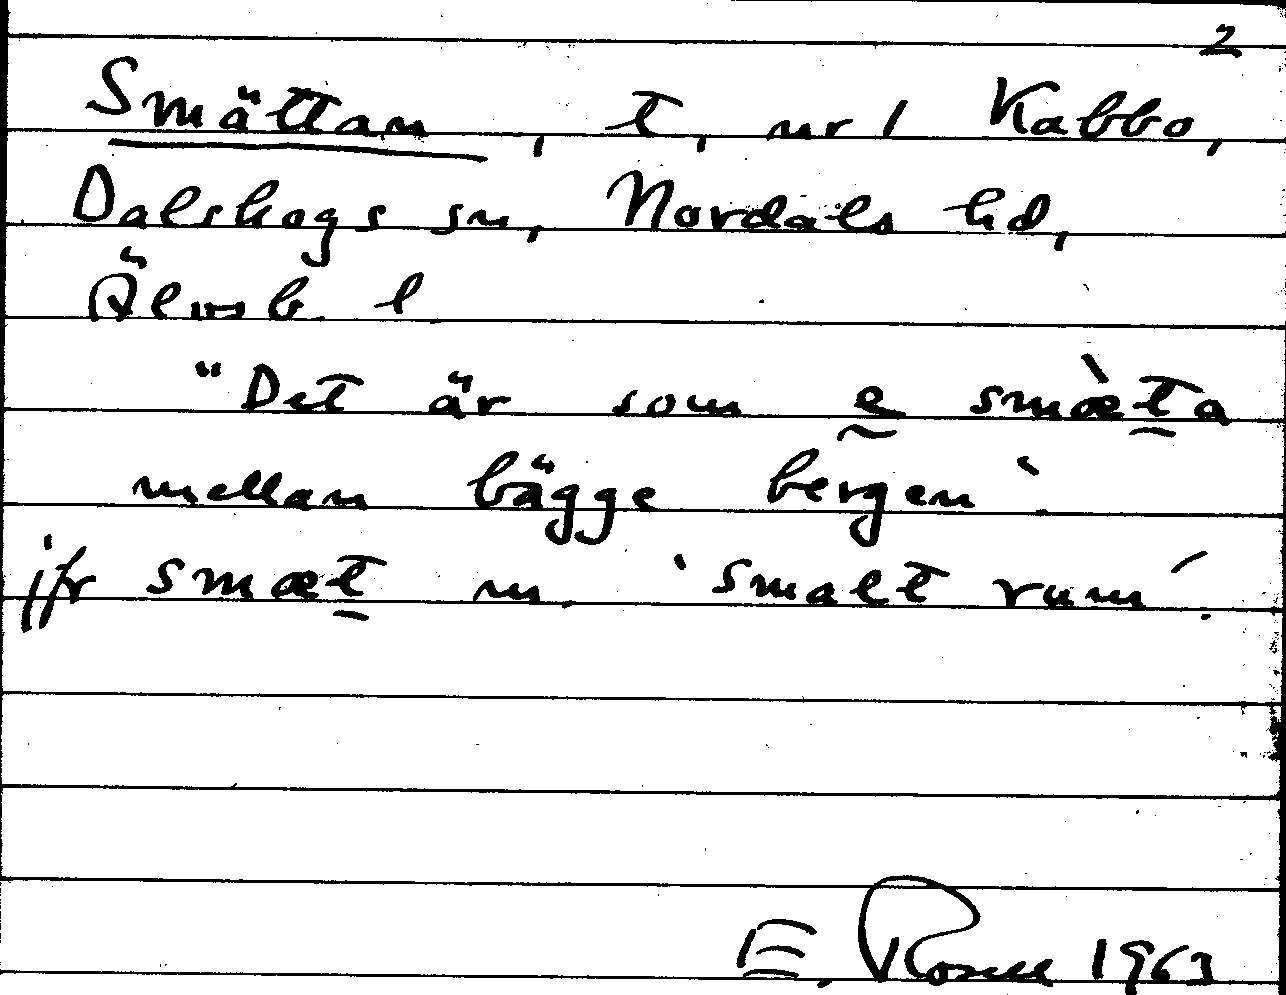 2
Smättan, t, nr 1 Kabbo,
Dalskogs sn, Nordals hd,
Älvsb. l
"Det är som ḛ smæ̀t̲a
mellan bägge bergen".
jfr smæt̲ n. 'smalt rum'.
E. Rosell 1963